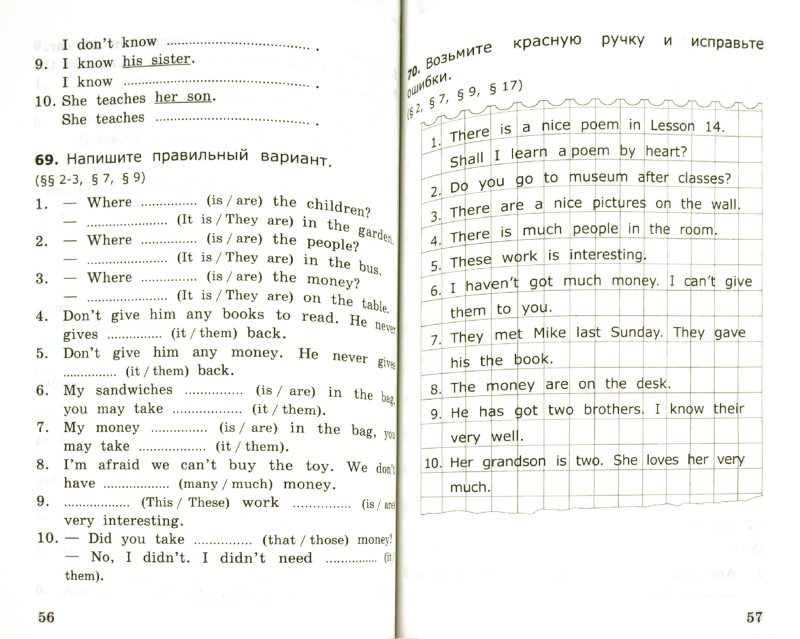 I don't know .................................... .
9. I know his sister.
I know ................................................ .
10. She teaches her son.
She teaches ...................................... .
69. Напишите правильный вариант.
(§§ 2-3, § 7, § 9)
1. — Where .............. (is / are) the children?
— .................... (It is / They are) in the garden.
2. — Where .............. (is / are) the people?
— .................... (It is / They are) in the bus.
3. — Where .............. (is / are) the money?
— .................... (It is / They are) on the table.
4. Don't give him any books to read. He never
gives .............. (it / them) back.
5. Don't give him any money. He never gives
.............. (it / them) back.
6. My sandwiches .............. (is / are) in the bag,
you may take ................. (it / them).
7. My money .............. (is / are) in the bag, you
may take .................. (it / them).
8. I'm afraid we can't buy the toy. We don't
have ................. (many / much) money.
9. ................. (This / These) work .............. (is / are)
very interesting.
10. — Did you take ................. (that / those) money?
— No, I didn't. I didn't need ............. (it /
them).
56
70. Возьмите красную ручку и исправьте
ошибки.
(§ 2, § 7, § 9, § 17)
1. There is a nice poem in Lesson 14.
Shall I learn a poem by heart?
2. Do you go to museum after classes?
3. There are a nice pictures on the wall.
4. There is much people in the room.
5. These work is interesting.
6. I haven't got much money. I can't give
them to you.
7. They met Mike last Sunday. They gave
his the book.
8. The money are on the desk.
9. He has got two brothers. I know their
very well.
10. Her grandson is two. She loves her very
much.
57